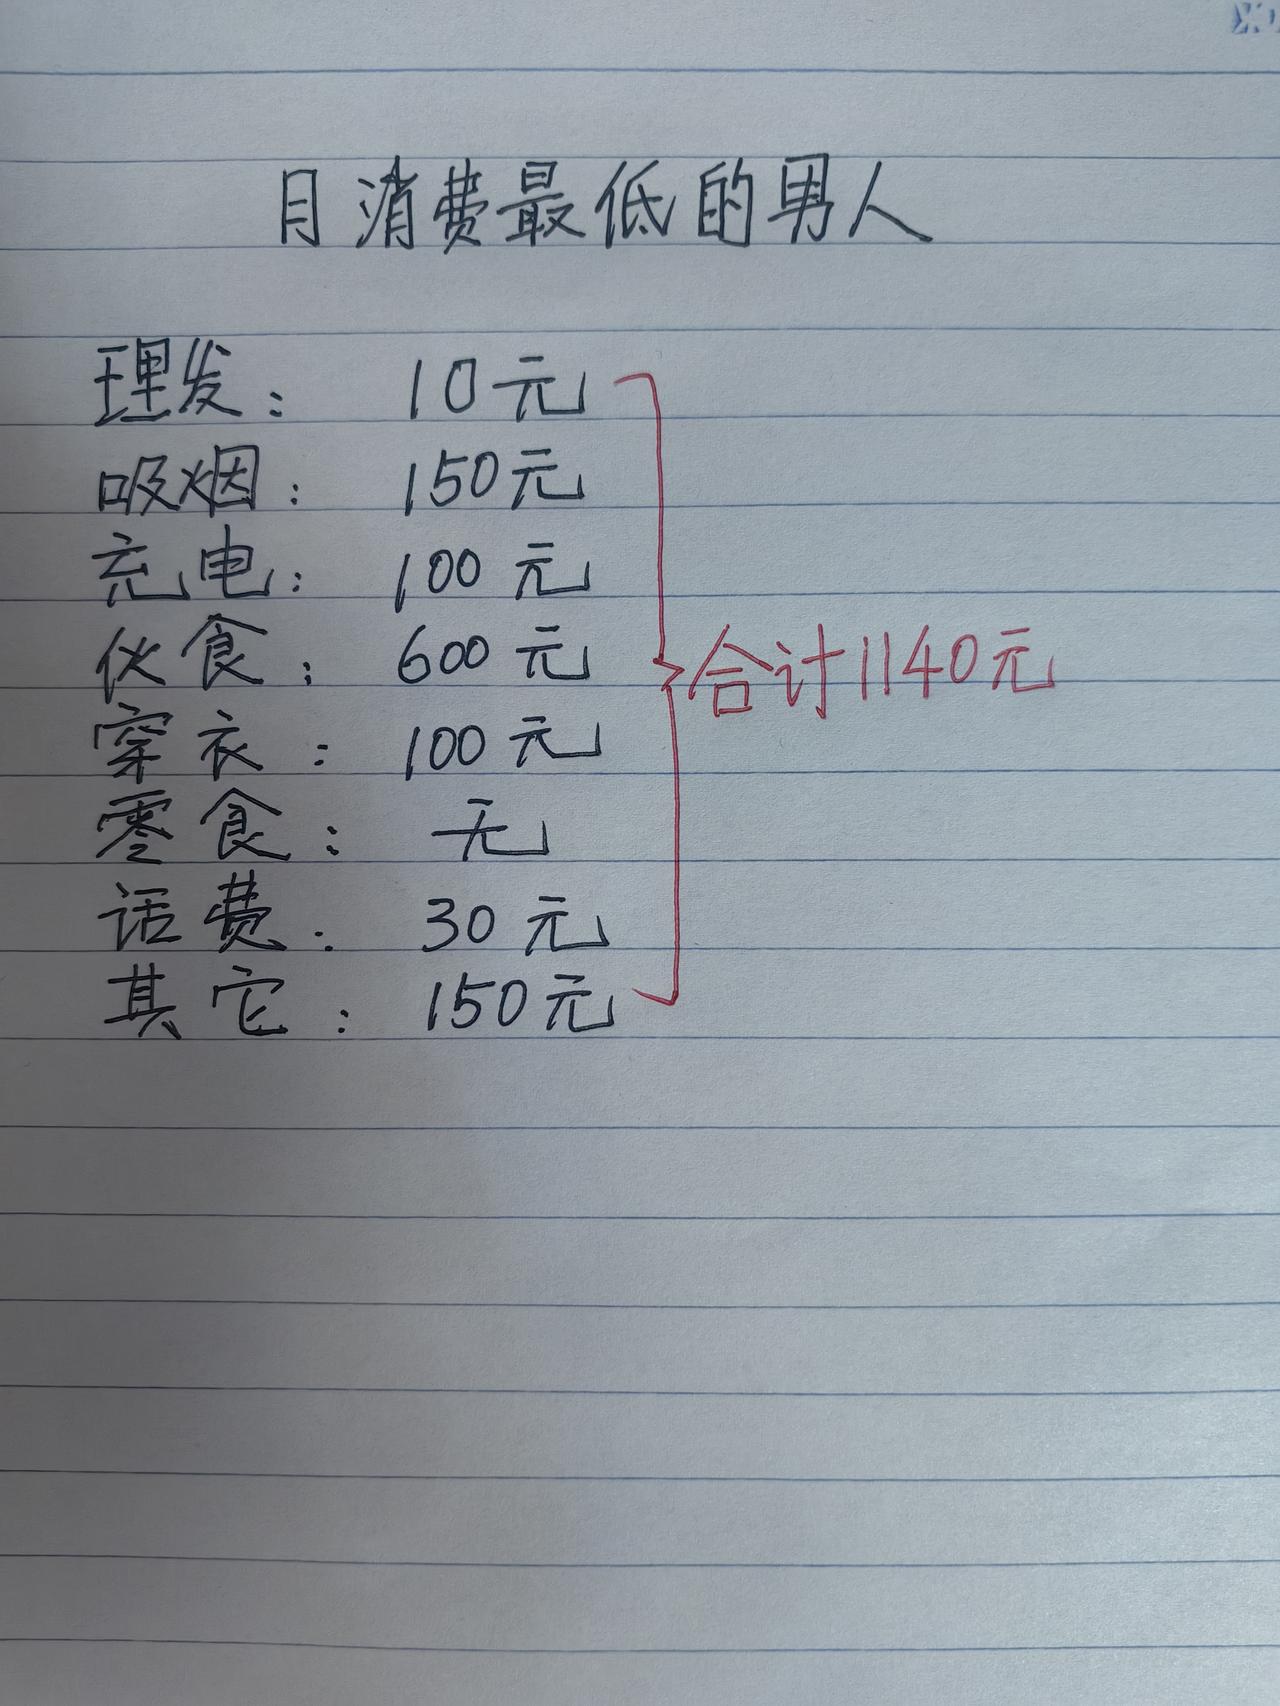 月消费最低的男人
理发： 10元
吸烟： 150元
充电： 100元
伙食： 600元
合计1140元
穿衣： 100元
零食： 无
话费： 30元
其它： 150元